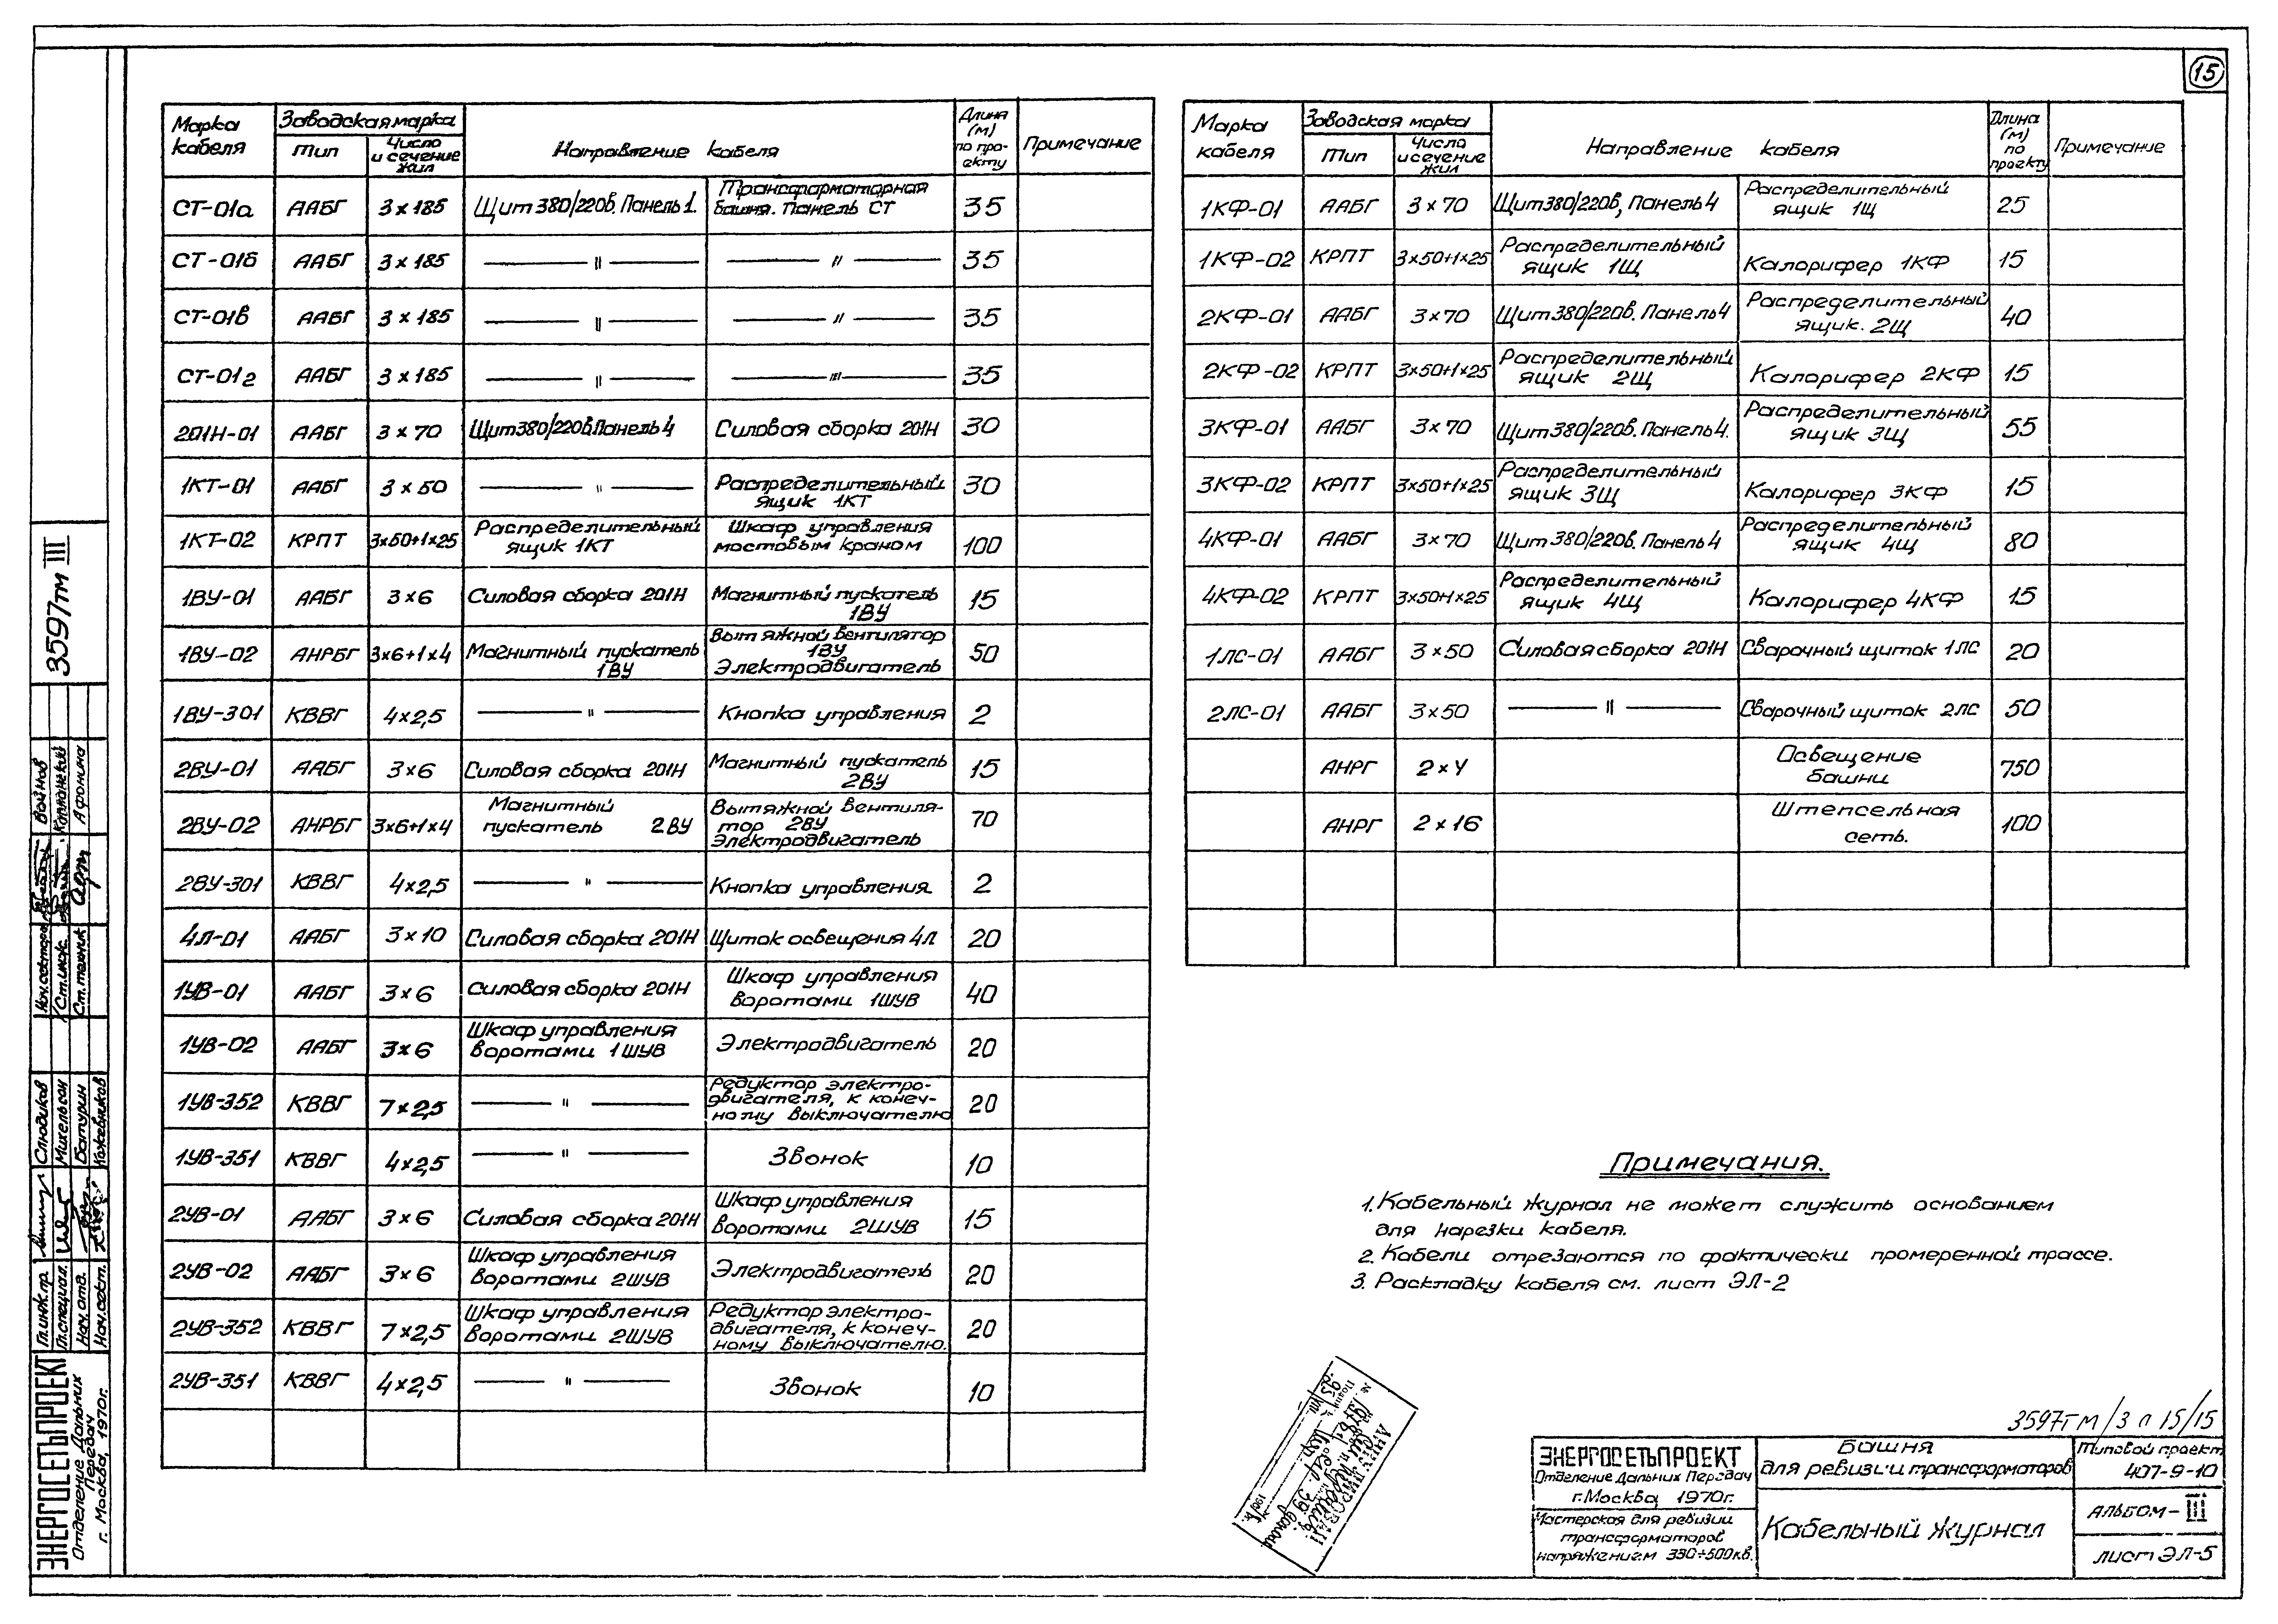 15
Марка кабеля | Заводская марка | Направление кабеля | Длина (м) по проекту | Примечание
Тип | Число и сечение жил
СТ-01а | ААБГ | 3×185 | Щит 380/220в. Панель 1. | Трансформаторная башня. Панель СТ | 35
СТ-01б | ААБГ | 3×185 | — " — | — " — | 35
СТ-01в | ААБГ | 3×185 | — " — | — " — | 35
СТ-01г | ААБГ | 3×185 | — " — | — " — | 35
201Н-01 | ААБГ | 3×70 | Щит 380/220в. Панель 4 | Силовая сборка 201Н | 30
1КТ-01 | ААБГ | 3×50 | — " — | Распределительный ящик 1КТ | 30
1КТ-02 | КРПТ | 3×50+1×25 | Распределительный ящик 1КТ | Шкаф управления мостовым краном | 100
1ВУ-01 | ААБГ | 3×6 | Силовая сборка 201Н | Магнитный пускатель 1ВУ | 15
1ВУ-02 | АНРБГ | 3×6+1×4 | Магнитный пускатель 1ВУ | Вытяжной вентилятор 1ВУ Электродвигатель | 50
1ВУ-301 | КВВГ | 4×2,5 | — " — | Кнопка управления | 2
2ВУ-01 | ААБГ | 3×6 | Силовая сборка 201Н | Магнитный пускатель 2ВУ | 15
2ВУ-02 | АНРБГ | 3×6+1×4 | Магнитный пускатель 2ВУ | Вытяжной вентилятор 2ВУ Электродвигатель | 70
2ВУ-301 | КВВГ | 4×2,5 | — " — | Кнопка управления | 2
4Л-01 | ААБГ | 3×10 | Силовая сборка 201Н | Щиток освещения 4Л | 20
1УВ-01 | ААБГ | 3×6 | Силовая сборка 201Н | Шкаф управления воротами 1ШУВ | 40
1УВ-02 | ААБГ | 3×6 | Шкаф управления воротами 1ШУВ | Электродвигатель | 20
1УВ-352 | КВВГ | 7×2,5 | — " — | Редуктор электродвигателя, к конечному выключателю | 20
1УВ-351 | КВВГ | 4×2,5 | — " — | Звонок | 10
2УВ-01 | ААБГ | 3×6 | Силовая сборка 201Н | Шкаф управления воротами 2ШУВ | 15
2УВ-02 | ААБГ | 3×6 | Шкаф управления воротами 2ШУВ | Электродвигатель | 20
2УВ-352 | КВВГ | 7×2,5 | Шкаф управления воротами 2ШУВ | Редуктор электродвигателя, к конечному выключателю. | 20
2УВ-351 | КВВГ | 4×2,5 | — " — | Звонок | 10
Марка кабеля | Заводская марка | Направление кабеля | Длина (м) по проекту | Примечание
Тип | Число и сечение жил
1КФ-01 | ААБГ | 3×70 | Щит 380/220в, Панель 4 | Распределительный ящик 1Щ | 25
1КФ-02 | КРПТ | 3×50+1×25 | Распределительный ящик 1Щ | Калорифер 1КФ | 15
2КФ-01 | ААБГ | 3×70 | Щит 380/220в. Панель 4 | Распределительный ящик. 2Щ | 40
2КФ-02 | КРПТ | 3×50+1×25 | Распределительный ящик 2Щ | Калорифер 2КФ | 15
3КФ-01 | ААБГ | 3×70 | Щит 380/220в. Панель 4. | Распределительный ящик 3Щ | 55
3КФ-02 | КРПТ | 3×50+1×25 | Распределительный ящик 3Щ | Калорифер 3КФ | 15
4КФ-01 | ААБГ | 3×70 | Щит 380/220в. Панель 4 | Распределительный ящик 4Щ | 80
4КФ-02 | КРПТ | 3×50+1×25 | Распределительный ящик 4Щ | Калорифер 4КФ | 15
1ЛС-01 | ААБГ | 3×50 | Силовая сборка 201Н | Сварочный щиток 1ЛС | 20
2ЛС-01 | ААБГ | 3×50 | — " — | Сварочный щиток 2ЛС | 50
АНРГ | 2×4 | Освещение башни | 750
АНРГ | 2×16 | Штепсельная сеть. | 100
Примечания.
1. Кабельный журнал не может служить основанием
для нарезки кабеля.
2. Кабели отрезаются по фактически промеренной трассе.
3. Раскладку кабеля см. лист ЭЛ-2
3597тм/3 л 15/15
ЭНЕРГОСЕТЬПРОЕКТ
Отделение Дальних Передач
г. Москва, 1970г.
Мастерская для ревизии
трансформаторов
напряжением 330÷500кв.
Башня
для ревизии трансформаторов
Кабельный журнал
Типовой проект
407-9-10
Альбом-III
лист ЭЛ-5
3597тм III
Нач.сектора Войнов
Ст.инж. Каплонский
Ст.техник Афонина
Гл.инж.пр. Слюдиков
Гл.специал. Михельсон
Нач.отд. Батурин
Нач.сект. Кожевников
ЭНЕРГОСЕТЬПРОЕКТ
Отделение Дальних
Передач
г. Москва, 1970г.